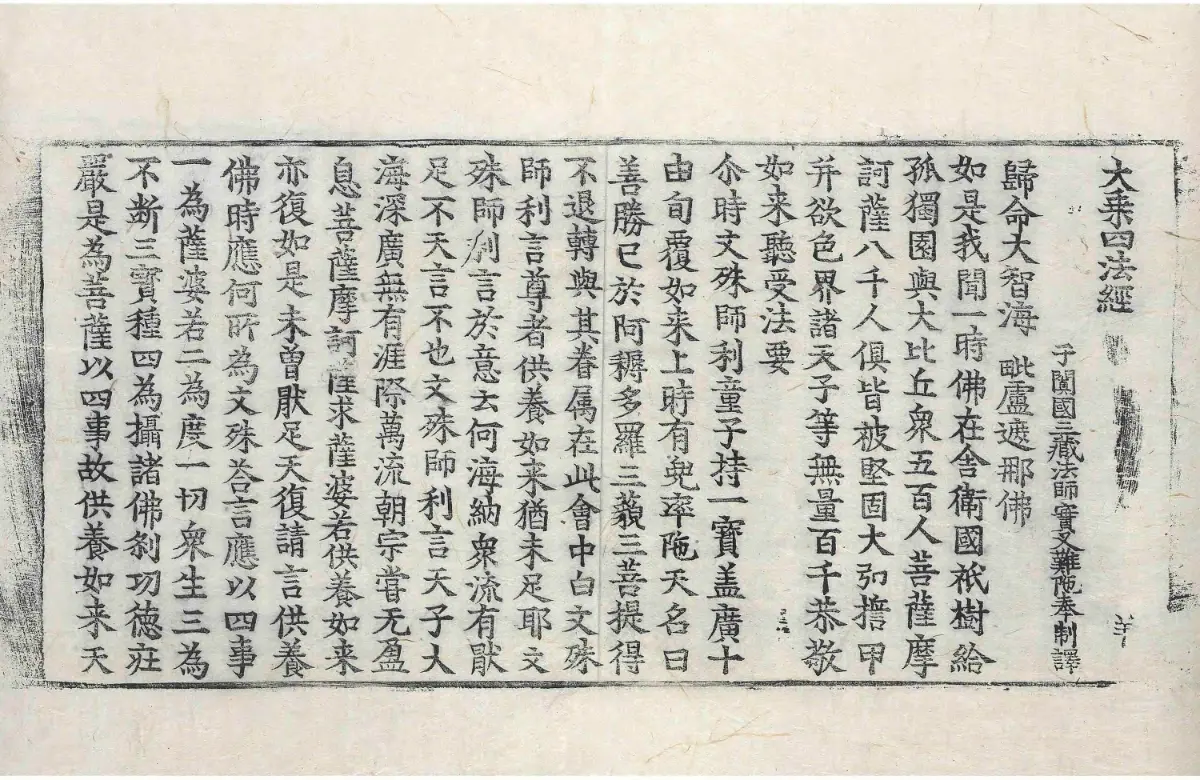 大乘四法經
于闐國三藏法師實叉難陁奉 制譯
歸命大智海 毗盧遮那佛
如是我聞一時佛在舍衛國祇樹給
孤獨園與大比丘衆五百人菩薩摩
訶薩八千人俱皆被堅固大弘擔甲
并欲色界諸天子等無量百千恭敬
如来聽受法要
尒時文殊師利童子持一寳盖廣十
由旬覆如来上時有兜率陁天名曰
善勝已於阿耨多羅三藐三菩提得
不退轉與其眷属在此會中白文殊
師利言尊者供養如来猶未足耶文
殊師利言於意云何海納衆流有猒
足不天言不也文殊師利言天子大
海深廣無有涯際萬流朝宗甞无盈
息菩薩摩訶薩求薩婆若供養如来
亦復如是未曽猒足天復請言供養
佛時應何所為文殊荅言應以四事
一為薩婆若二為度一切衆生三為
不断三寳種四為攝諸佛刹功徳莊
嚴是為菩薩以四事故供養如来天